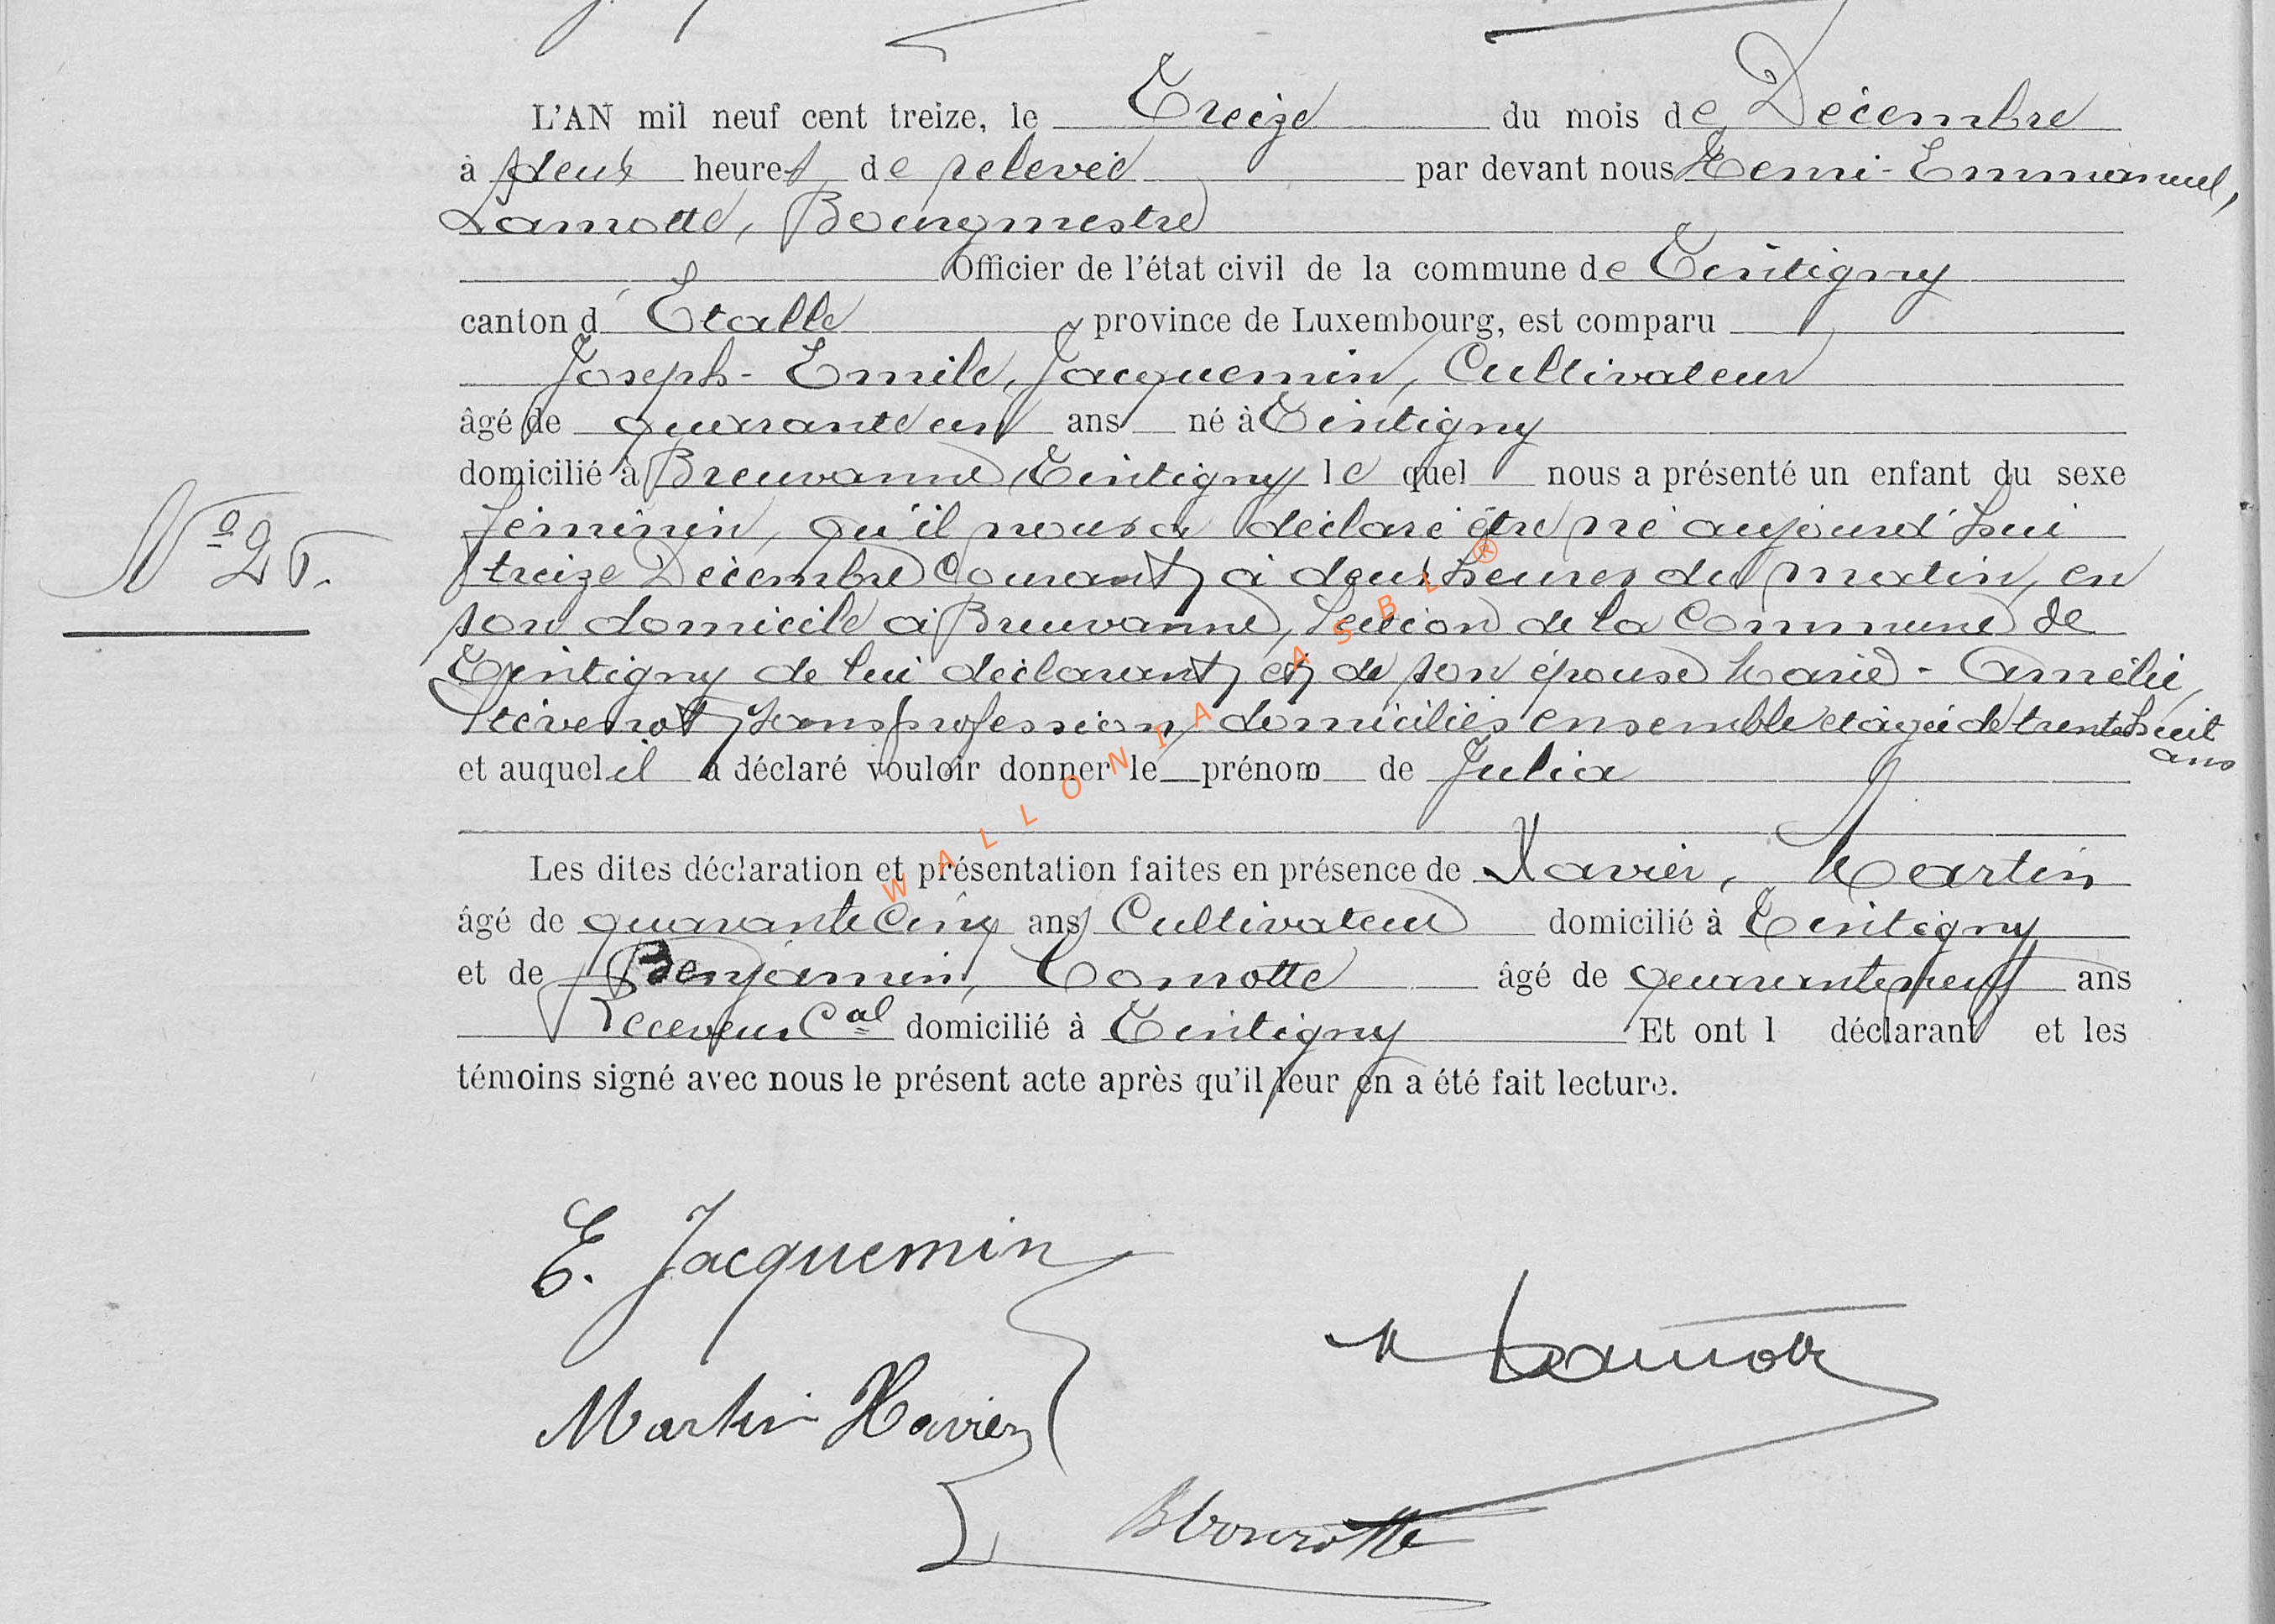 L'AN mil neuf cent treize, le Treize du mois de Décembre
à deux heures de relevée par devant nous Henri-Emmanuel,
Lamotte, Bourgmestre
Officier de l'état civil de la commune de Tintigny
canton d'Etalle province de Luxembourg, est comparu
Joseph-Emile, Jacquemin, Cultivateur
âgé de quarante un ans né à Tintigny
domicilié à Breuvanne Tintigny le quel nous a présenté un enfant du sexe
féminin, qu'il nous a déclaré être né aujourd'hui
treize Décembre Courant, à deux heures du matin, en
N° 25.
son domicile à Breuvanne, Section de la Commune de
Tintigny de lui déclarant, et de son épouse Marie-Amélie,
Stévenot, sans profession, domiciliés ensemble et âgée de trente huit
ans
et auquel il a déclaré vouloir donner le prénom de Julia
Les dites déclaration et présentation faites en présence de Xavier, Martin
âgé de quarante cinq ans Cultivateur domicilié à Tintigny
et de Benjamin, âgé de quarante neuf ans
Receveur Cal domicilié à Tintigny Et ont l déclarant et les
témoins signé avec nous le présent acte après qu'il leur en a été fait lecture.
E. Jacquemin
Lamotte
Martin Xavier
WALLONIA ASBL ®